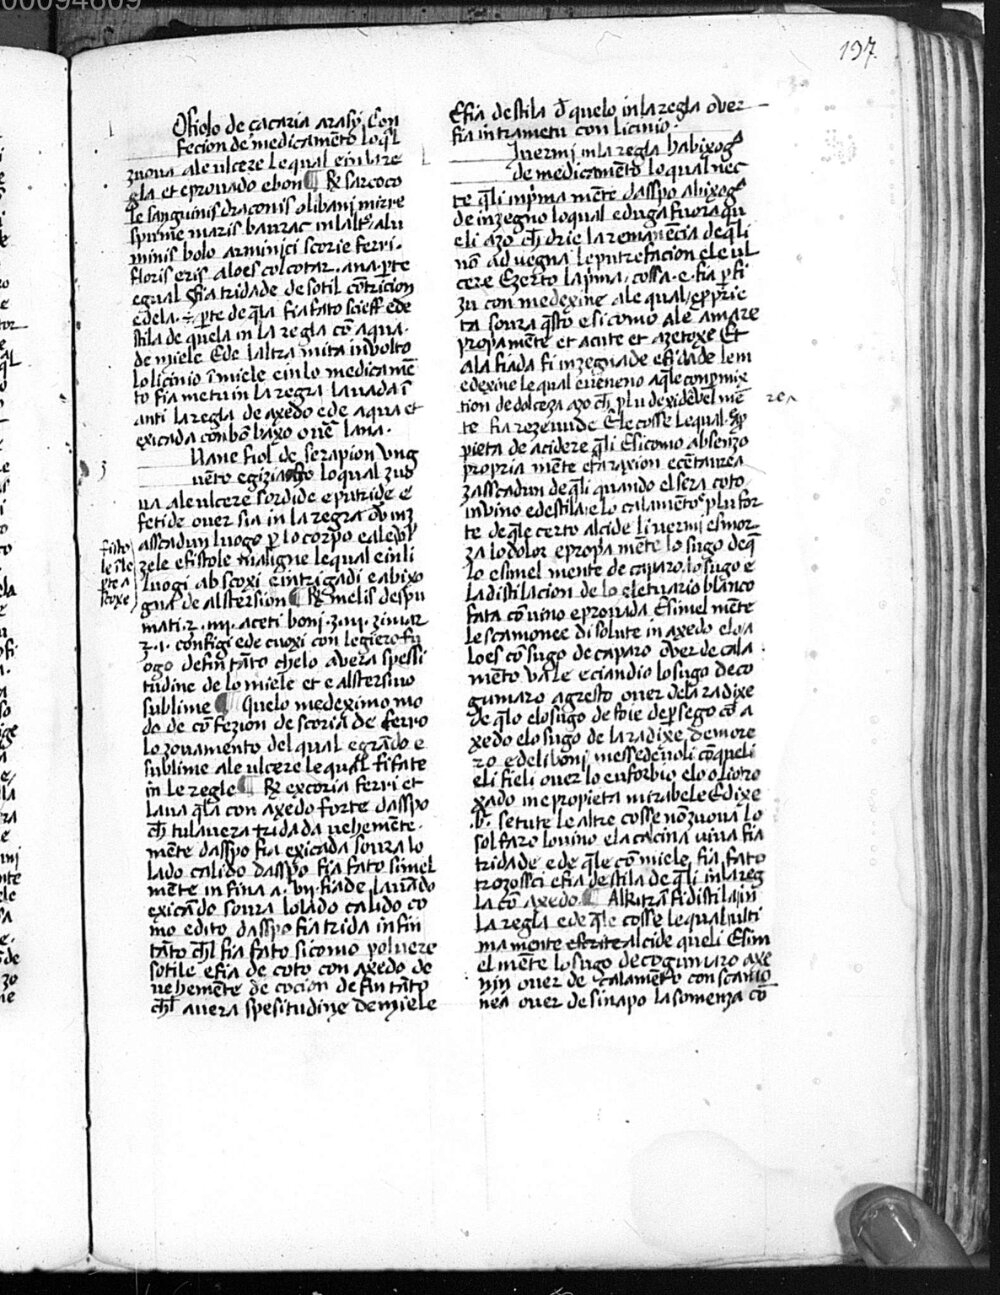 00094609
197
Ofiolo de çacaria arasy. Con
fecion de medicamẽto loq̃l
zuoua ale ulcere le qual ein la re
gla et eprouado e bon ¶ ℞ sarcoco
le sanguinis draconis olibani mirre
spume maris baurac
minis bolo arminici scorie ferri.
floris eris aloes colcotar. ana. p̃te
equal
edela. p̃te de q̃la fia fato scieff e de
stila de quela in la regla cõ aqua.
de miele Ede laltra mita inuolto
lo licinio ĩ miele e in lo medicamẽ
to fia metu in la regra lauada ĩ
anti la regla de axedo e de aqua et
exicada con bõ baxo ouer lana.
Uane fiol de serapion ung
uento egiziago lo qual zud
ua ale ulcere sordide e putride e
fetide ouer sia in la regra
asscadun luogo p lo corpo
zele e fistole maligne le qual ein li
luogi abscoxi e intrigadi e abixo
gna de alstersion ¶ ℞ melis despu
mati. aceti boni ziniar
configi ede cuoxi con legiero fu
ogo defin tãto chelo auera spessi
tudine de lo miele et e alstersiuo
sublime ¶ Quelo medeximo mo
do de cõfezion de scoria de ferro
lo zouamento del qual e grãdo e
sublime ale ulcere le qual fi fate
in le regle ¶ ℞ excoria ferri et
laua q̃la con axedo forte dasspo
ch̃ tu lauera tridada uehemẽte
mẽte dasspo fia exicada soura lo
lado calido dasspo fia fato simel
mẽte in fina a. vij. fiade lauãdo
exicãdo soura lo lado calido co
mo e dito dasspo fia trida in fin
tãto ch̃l fia fato sicomo poluere
sotile e fia de coto con axedo de
uehemẽte de cocion de fin tãto
ch̃l auera spesitudine de miele
fisto
le ĩ le
p̃te a
scoxe
E fia destila d̃ quelo in la regla ouer
fia intrametu con licinio.
I uermi in la regla habixogã
de medicamẽto lo qual nec
te q̃li in p̃ma mẽte dasspo abixogã
de inzegno lo qual eduga fuora qu
eli azo ch̃ drie la remanẽcia de q̃li
nõ aduegna le putrefacion ele ul
cere E zerto la p̃ma cossa e fia p̃fi
zu con medexine ale qual
ta soura q̃sto e sicomo ale amare
propamẽte et acute et azetoxe Et
ala fiada fi inzegnade e fidade le m
edexine le qual e ueneno
tion de dolceza azo ch̃ plu dexideuel mẽ
te fia rezeuude E le cosse le qual
pieta de acidere q̃li E sicomo absenzo
propria mẽte e farasion e centaurea
zasscadun de q̃li quando el sera coto
in uino e destila e lo calamẽto e plu for
te de q̃le certo alcide li uermi e smor
za lo dolor e propa mẽte lo sugo de q̃
lo e simel mente de capparo. lo sugo e
la distilacion de lo eletuario blanco
fata cõ uino e prouada E simel mẽte
le scamonee disolute in axedo elo a
loes cõ sugo de caparo ouer de cala
mẽto uale e ciandio lo sugo de co
gumaro agresto ouer dela radixe
de q̃lo elo sugo de foie de p̃sego cõ a
xedo elo sugo de la radixe de more
ro e deliboni messedeuoli cõ q̃li peli
eli fieli ouer lo euforbio elo oliotro
xado in e propieta mirabele Edixe
.b. se tute le altre cosse nõ zuoua lo
solfaro lo uino ela calcina uiua fia
tridade e de q̃le cõ miele fia fato
trozossci e fia destila de q̃li in la reg
la cõ axedo ¶ Alkitrã fi distila in
la regla e de q̃le cosse le qual ulti
ma mente efcrite alcide queli E sim
el mẽte lo sugo de cogumaro axe
nin ouer de calamẽto con scamo
nea ouer de sinapo la somenza cõ